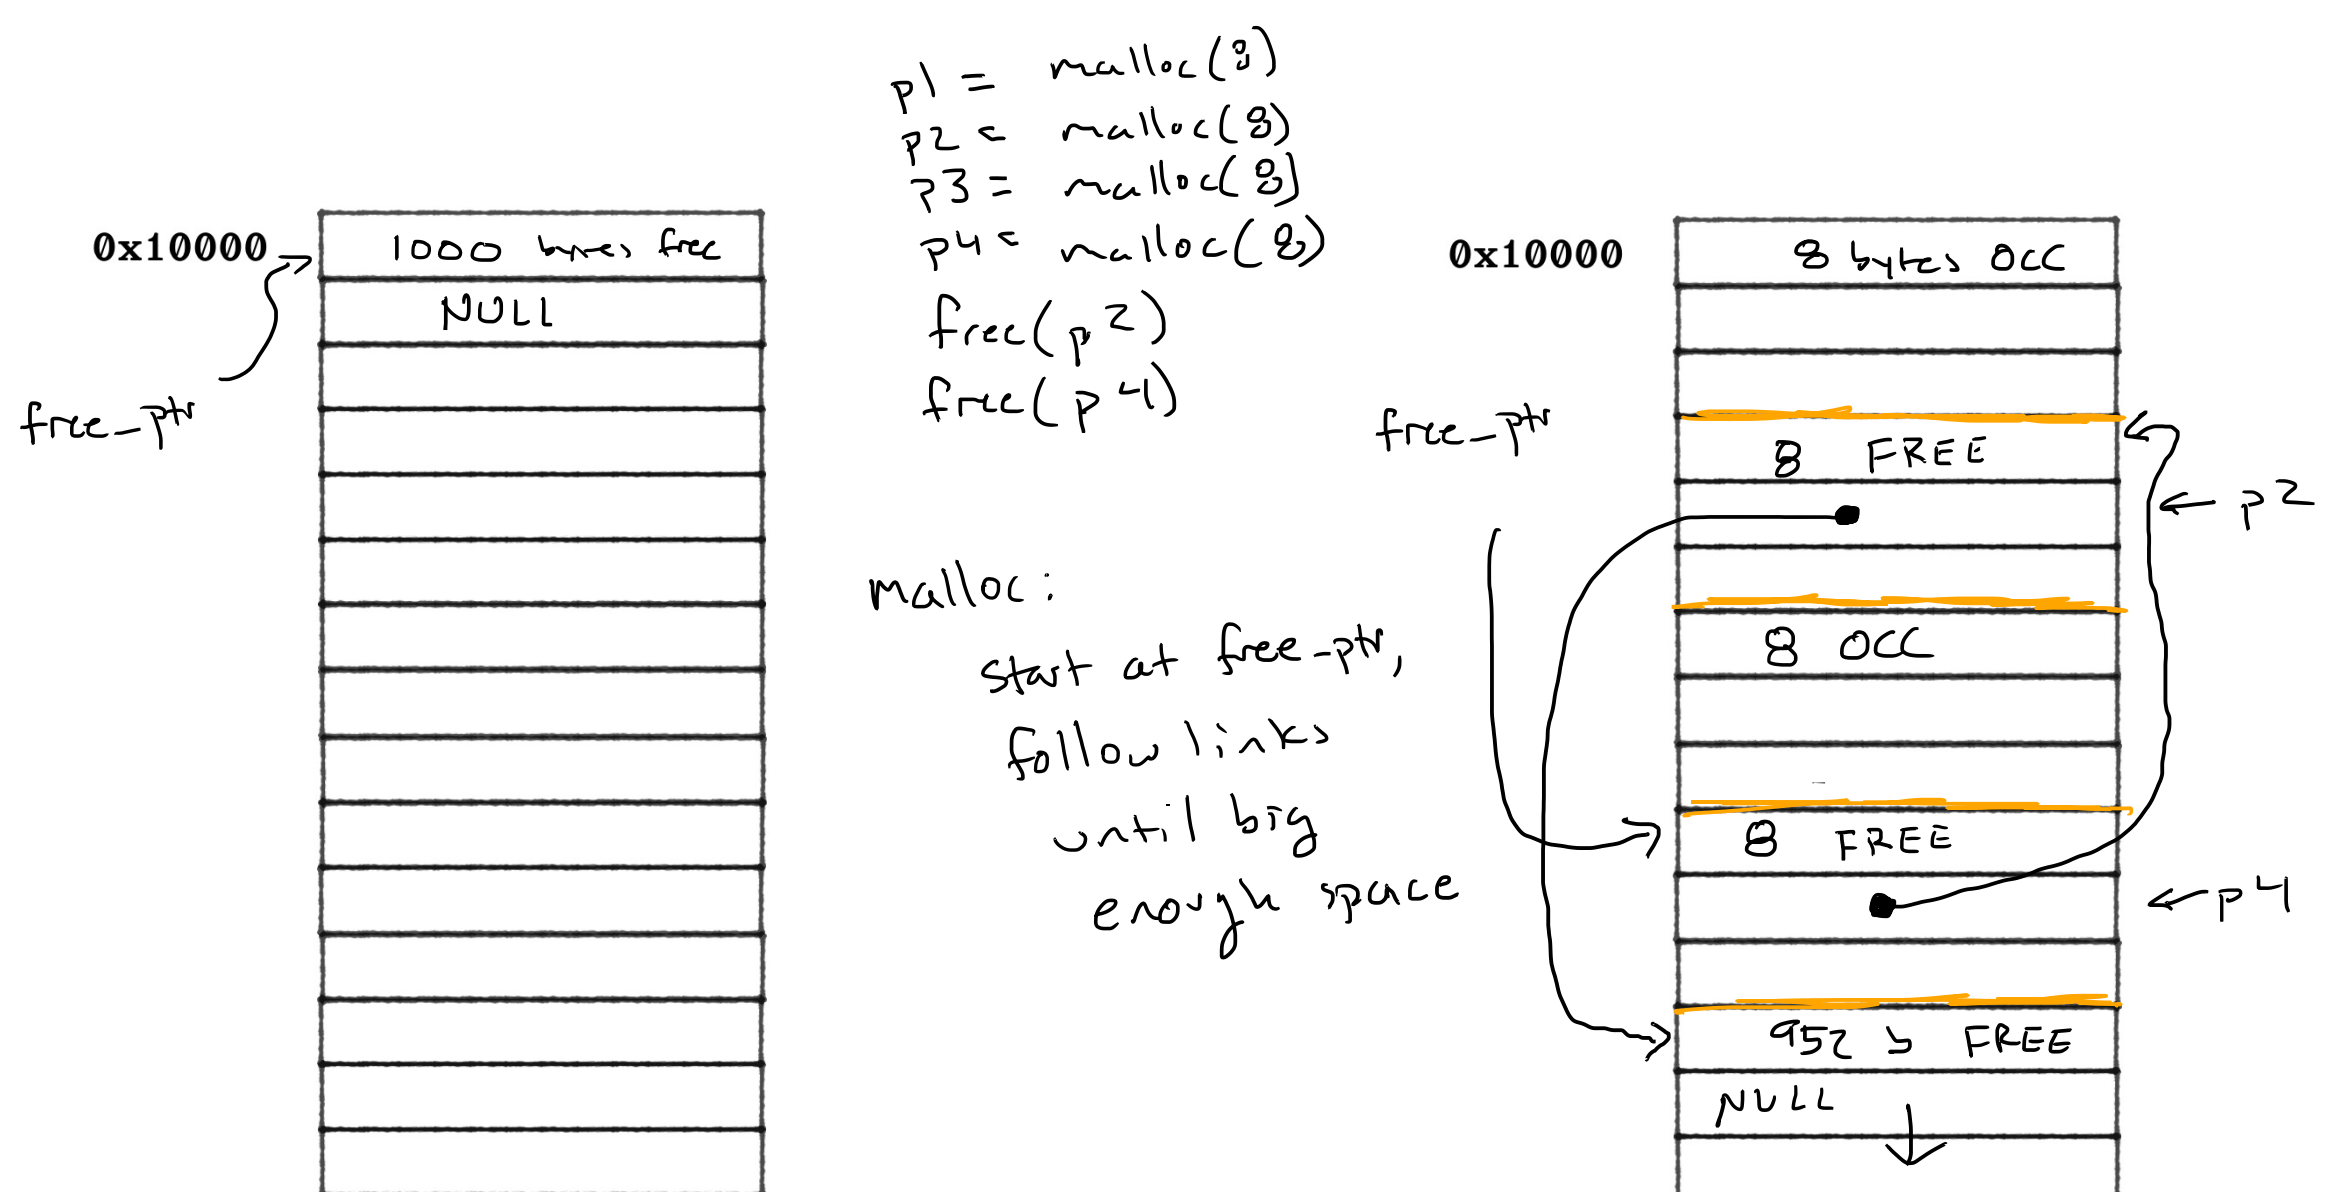 0x10000
1000 bytes free
NULL
free_ptr
p1 = malloc(8)
p2 = malloc(8)
p3 = malloc(8)
p4 = malloc(8)
free(p2)
free(p4)
malloc:
start at free_ptr,
follow links
until big
enough space
0x10000
8 bytes OCC
free_ptr
8 FREE
p2
8 OCC
8 FREE
p4
952 b FREE
NULL